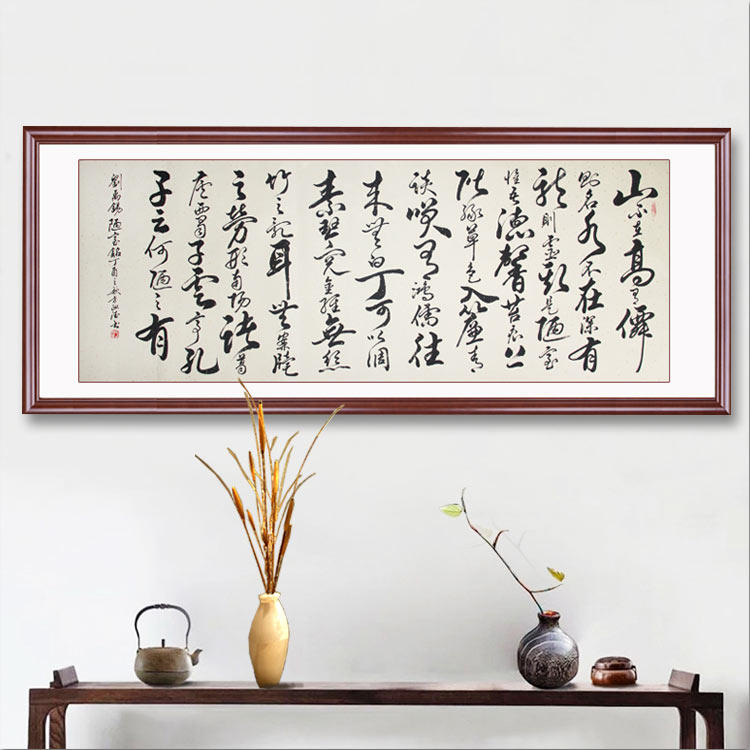 山不在高有僊
則名水不在深有
龍則靈斯是陋室
惟吾德馨苔痕上
階綠草色入簾青
談咲有鴻儒往
来無白丁可以調
素琴閱金經無絲
竹之亂耳無案牘
之勞形南陽諸葛
廬西蜀子雲亭孔
子云何陋之有
劉禹錫陋室銘丁酉之秋方書